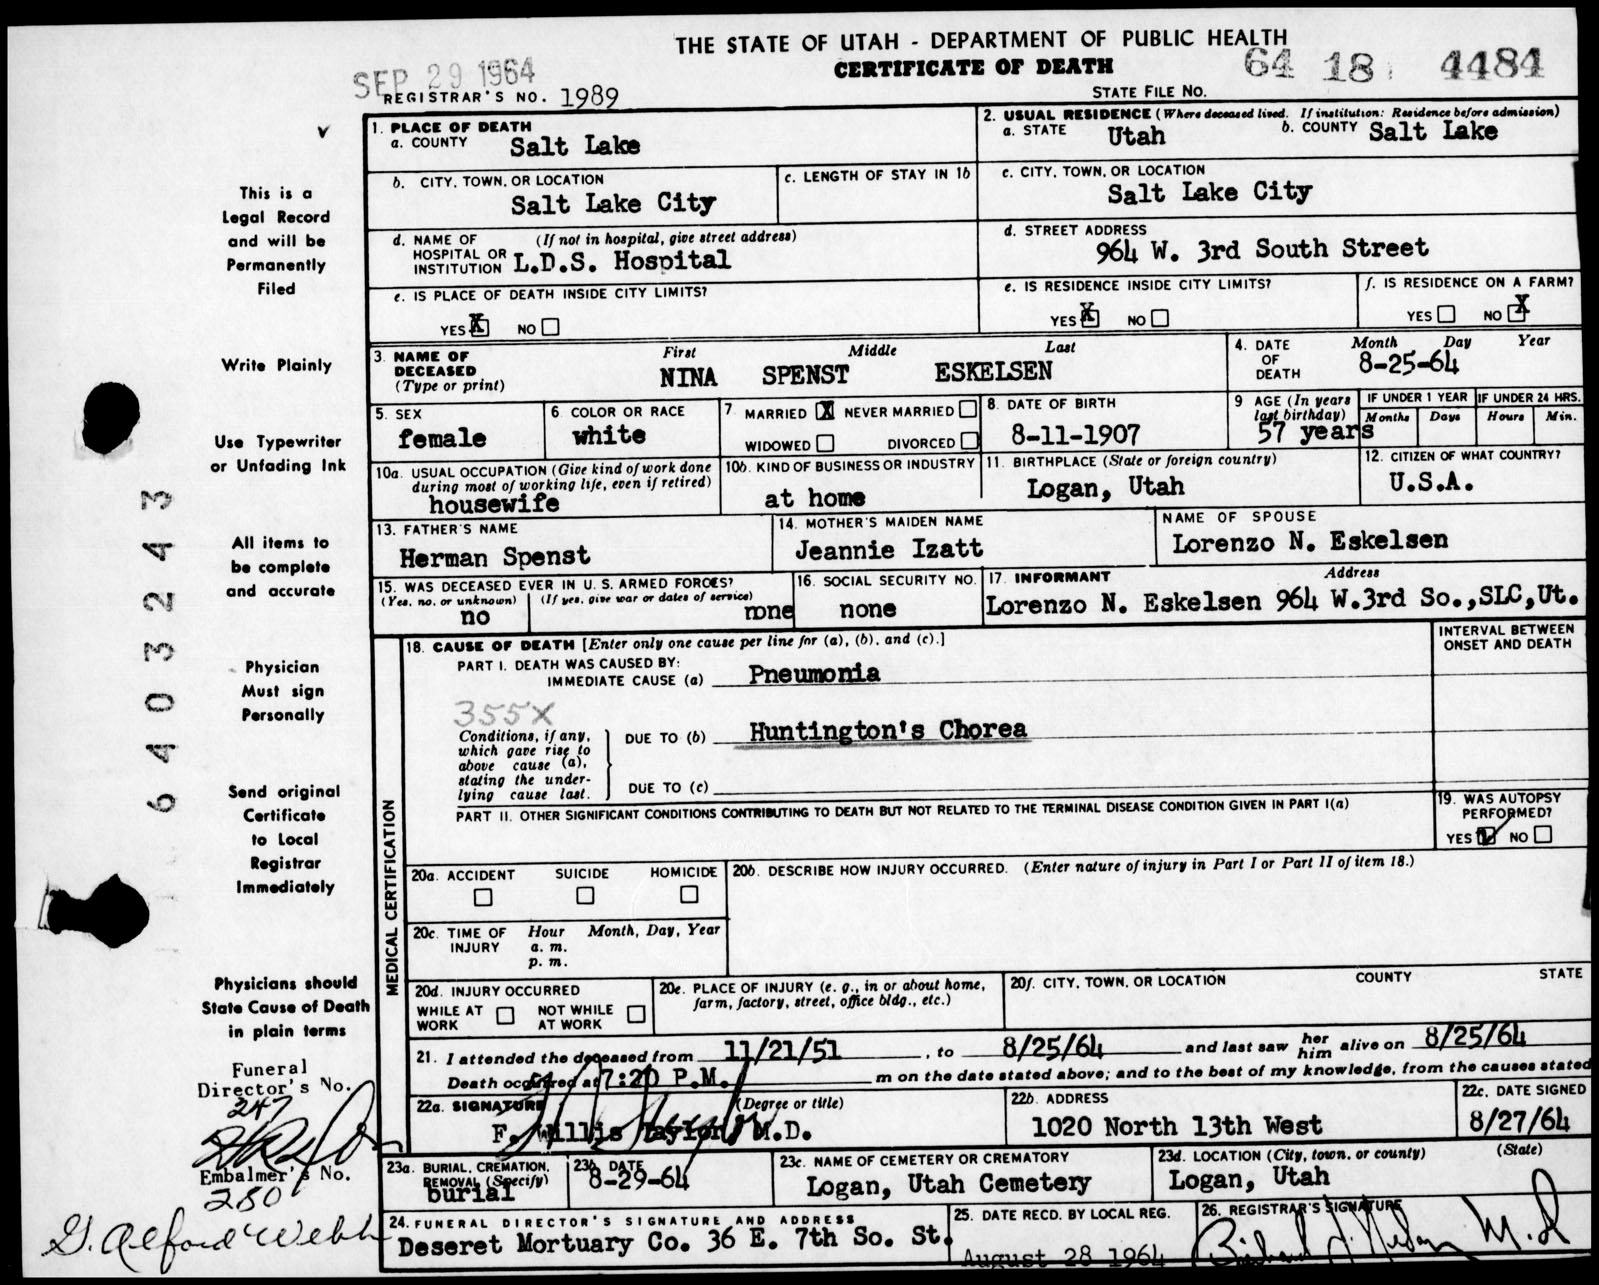 THE STATE OF UTAH - DEPARTMENT OF PUBLIC HEALTH
CERTIFICATE OF DEATH
SEP 29 1964
64 18 4484
REGISTRAR'S NO. 1989
STATE FILE NO.
1. PLACE OF DEATH
a. COUNTY Salt Lake
2. USUAL RESIDENCE (Where deceased lived. If institution: Residence before admission)
a. STATE Utah b. COUNTY Salt Lake
b. CITY, TOWN, OR LOCATION
Salt Lake City
c. LENGTH OF STAY IN 1b
c. CITY, TOWN, OR LOCATION
Salt Lake City
d. NAME OF HOSPITAL OR INSTITUTION (If not in hospital, give street address)
L.D.S. Hospital
d. STREET ADDRESS
964 W. 3rd South Street
e. IS PLACE OF DEATH INSIDE CITY LIMITS?
YES X NO
e. IS RESIDENCE INSIDE CITY LIMITS?
YES X NO
f. IS RESIDENCE ON A FARM?
YES NO X
3. NAME OF DECEASED (Type or print)
First Middle Last
NINA SPENST ESKELSEN
4. DATE OF DEATH
Month Day Year
8-25-64
5. SEX
female
6. COLOR OR RACE
white
7. MARRIED X NEVER MARRIED
WIDOWED DIVORCED
8. DATE OF BIRTH
8-11-1907
9 AGE (In years last birthday)
57 years
IF UNDER 1 YEAR
Months Days
IF UNDER 24 HRS.
Hours Min.
10a. USUAL OCCUPATION (Give kind of work done during most of working life, even if retired)
housewife
10b. KIND OF BUSINESS OR INDUSTRY
at home
11. BIRTHPLACE (State or foreign country)
Logan, Utah
12. CITIZEN OF WHAT COUNTRY?
U.S.A.
13. FATHER'S NAME
Herman Spenst
14. MOTHER'S MAIDEN NAME
Jeannie Izatt
NAME OF SPOUSE
Lorenzo N. Eskelsen
15. WAS DECEASED EVER IN U.S. ARMED FORCES?
(Yes, no, or unknown) (If yes, give war or dates of service)
no none
16. SOCIAL SECURITY NO.
none
17. INFORMANT Address
Lorenzo N. Eskelsen 964 W.3rd So.,SLC,Ut.
MEDICAL CERTIFICATION
18. CAUSE OF DEATH [Enter only one cause per line for (a), (b), and (c).]
INTERVAL BETWEEN ONSET AND DEATH
PART I. DEATH WAS CAUSED BY:
IMMEDIATE CAUSE (a) Pneumonia
355X
Conditions, if any, which gave rise to above cause (a), stating the underlying cause last.
DUE TO (b) Huntington's Chorea
DUE TO (c)
PART II. OTHER SIGNIFICANT CONDITIONS CONTRIBUTING TO DEATH BUT NOT RELATED TO THE TERMINAL DISEASE CONDITION GIVEN IN PART I(a)
19. WAS AUTOPSY PERFORMED?
YES NO
20a. ACCIDENT SUICIDE HOMICIDE
20b. DESCRIBE HOW INJURY OCCURRED. (Enter nature of injury in Part I or Part II of item 18.)
20c. TIME OF INJURY
Hour Month, Day, Year
a. m.
p. m.
20d. INJURY OCCURRED
WHILE AT WORK NOT WHILE AT WORK
20e. PLACE OF INJURY (e. g., in or about home, farm, factory, street, office bldg., etc.)
20f. CITY, TOWN, OR LOCATION COUNTY STATE
21. I attended the deceased from 11/21/51, to 8/25/64 and last saw her him alive on 8/25/64
Death occurred at 7:20 P.M. m on the date stated above; and to the best of my knowledge, from the causes stated
22a. SIGNATURE (Degree or title)
F. Willis Taylor M.D.
22b. ADDRESS
1020 North 13th West
22c. DATE SIGNED
8/27/64
23a. BURIAL, CREMATION, REMOVAL (Specify)
burial
23b. DATE
8-29-64
23c. NAME OF CEMETERY OR CREMATORY
Logan, Utah Cemetery
23d. LOCATION (City, town, or county) (State)
Logan, Utah
24. FUNERAL DIRECTOR'S SIGNATURE AND ADDRESS
Deseret Mortuary Co. 36 E. 7th So. St.
25. DATE RECD. BY LOCAL REG.
August 28 1964
26. REGISTRAR'S SIGNATURE
M.D
This is a
Legal Record
and will be
Permanently
Filed
Write Plainly
Use Typewriter
or Unfading Ink
All items to
be complete
and accurate
Physician
Must sign
Personally
Send original
Certificate
to Local
Registrar
Immediately
Physicians should
State Cause of Death
in plain terms
Funeral
Director's No.
247
Embalmer's No.
280
G. Alford Webb
6403243